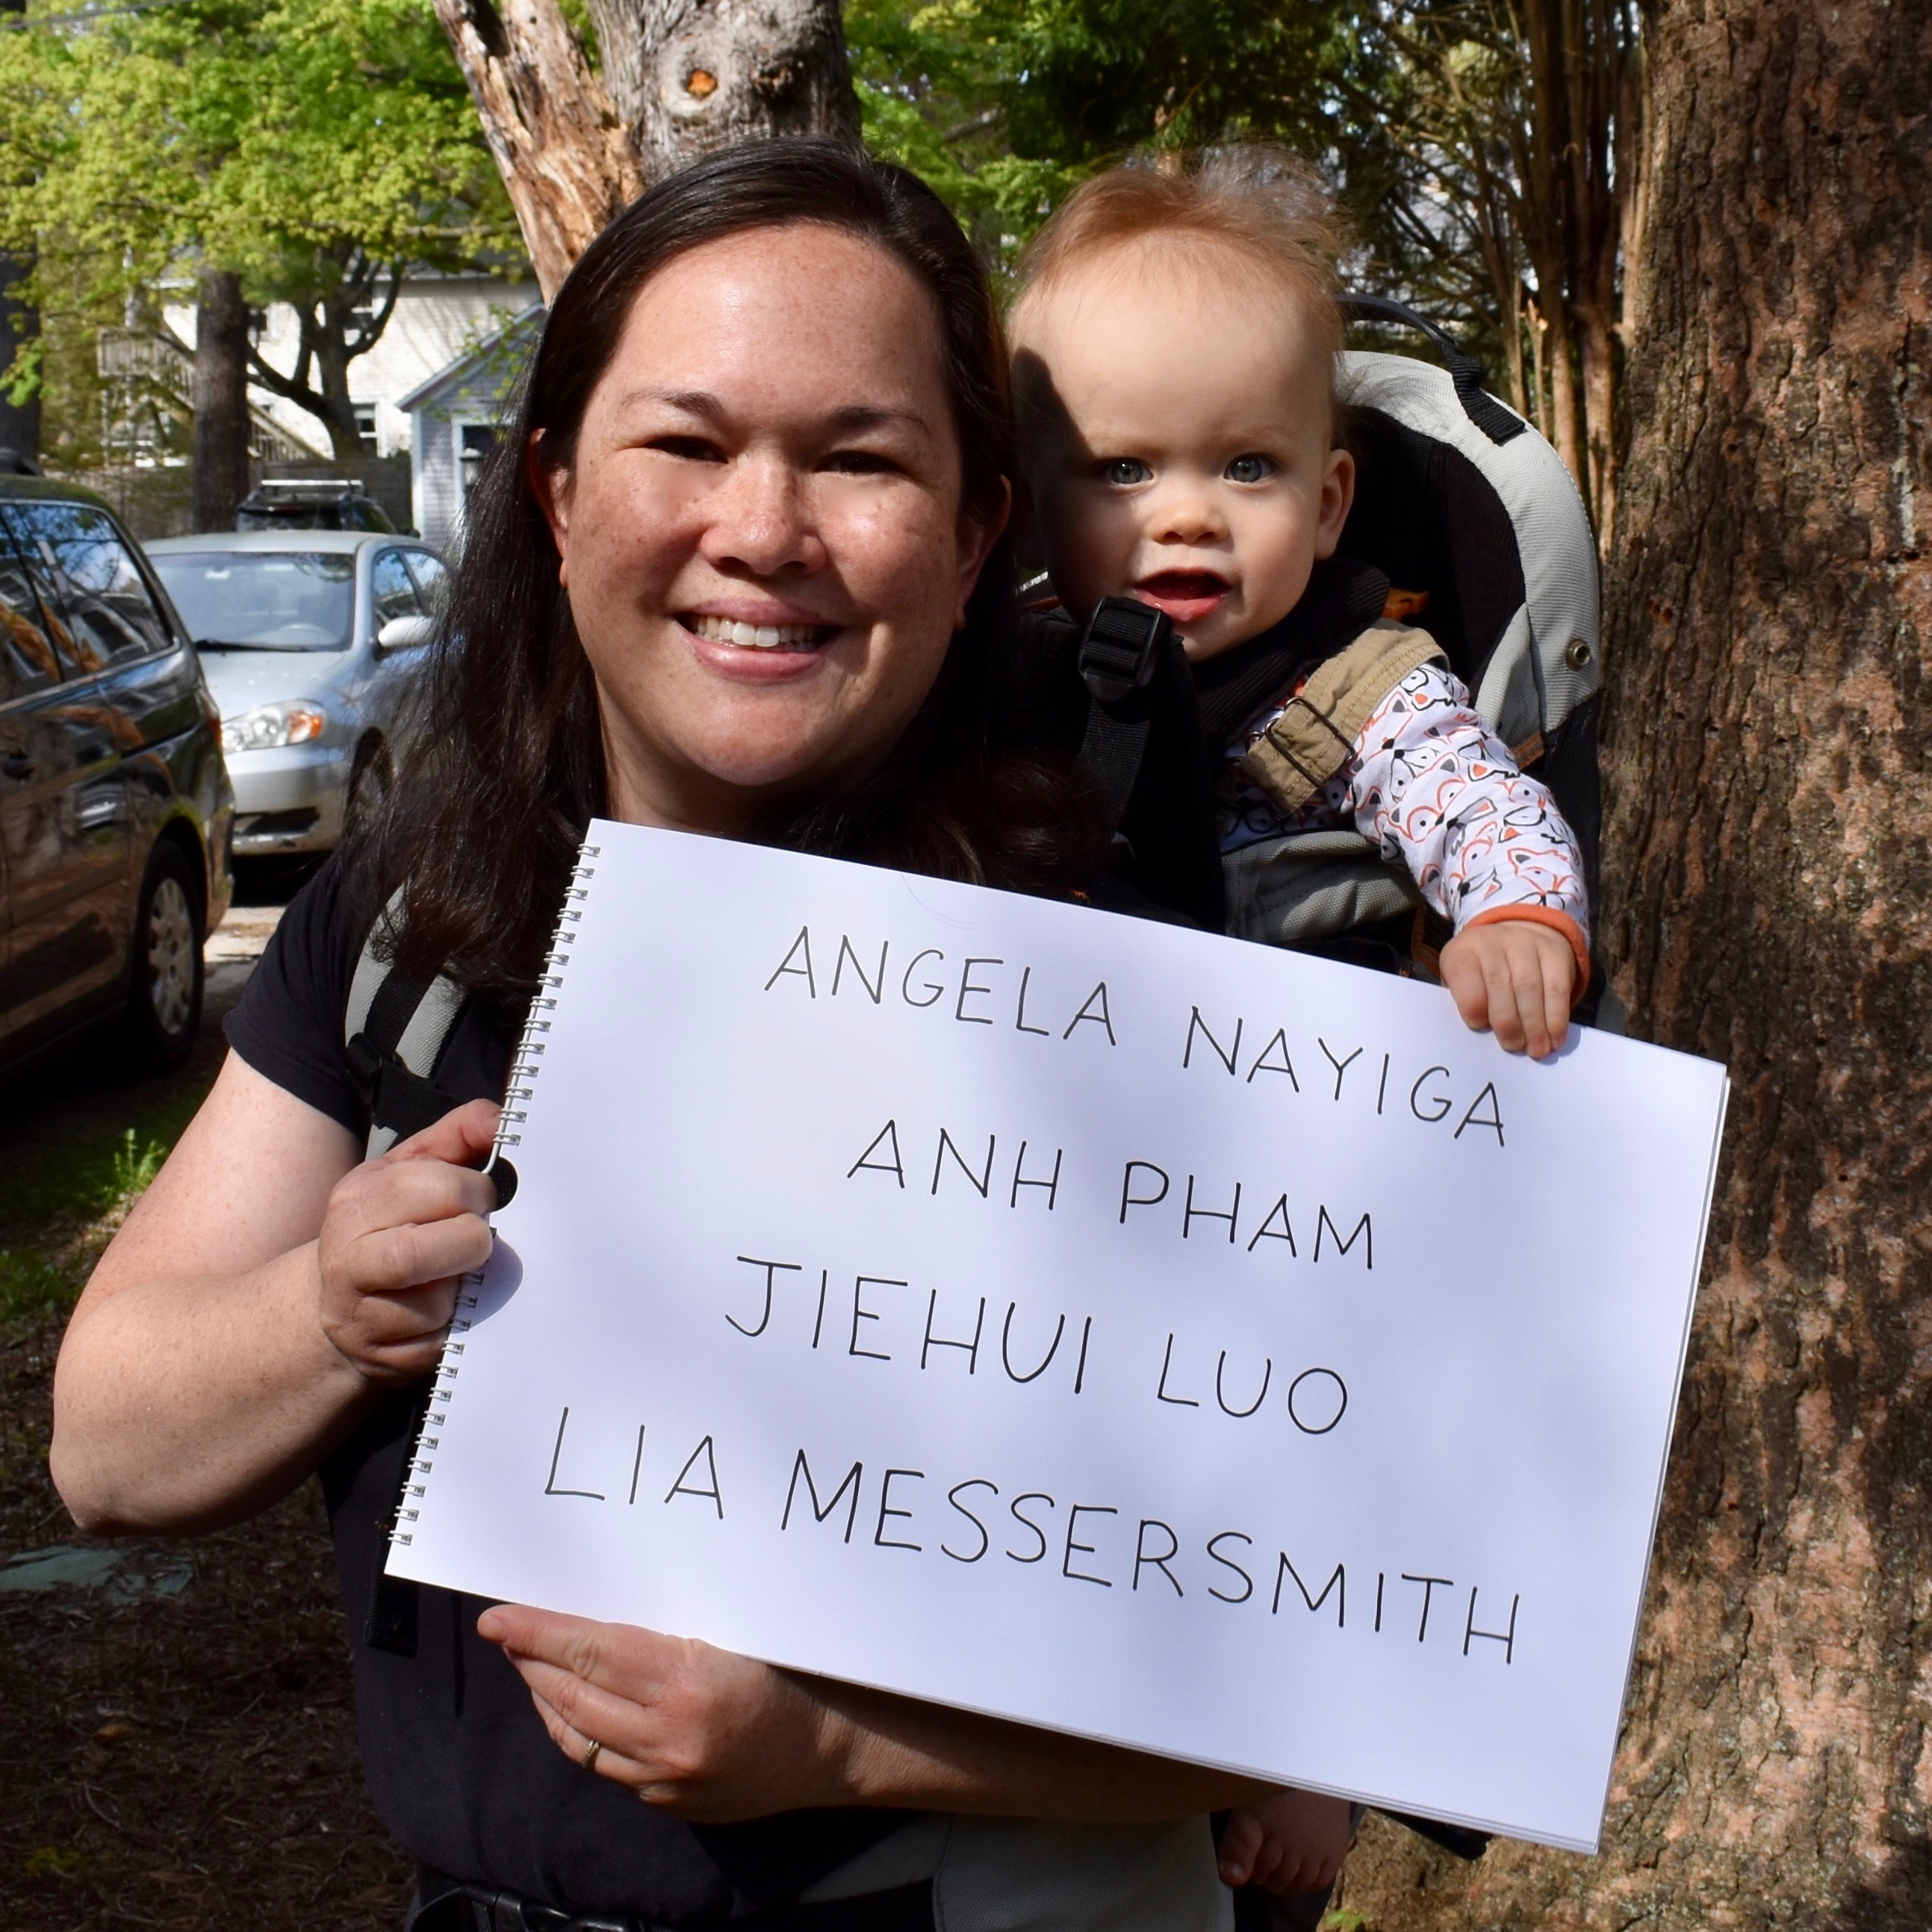 ANGELA NAYIGA
ANH PHAM
JIEHUI LUO
LIA MESSERSMITH